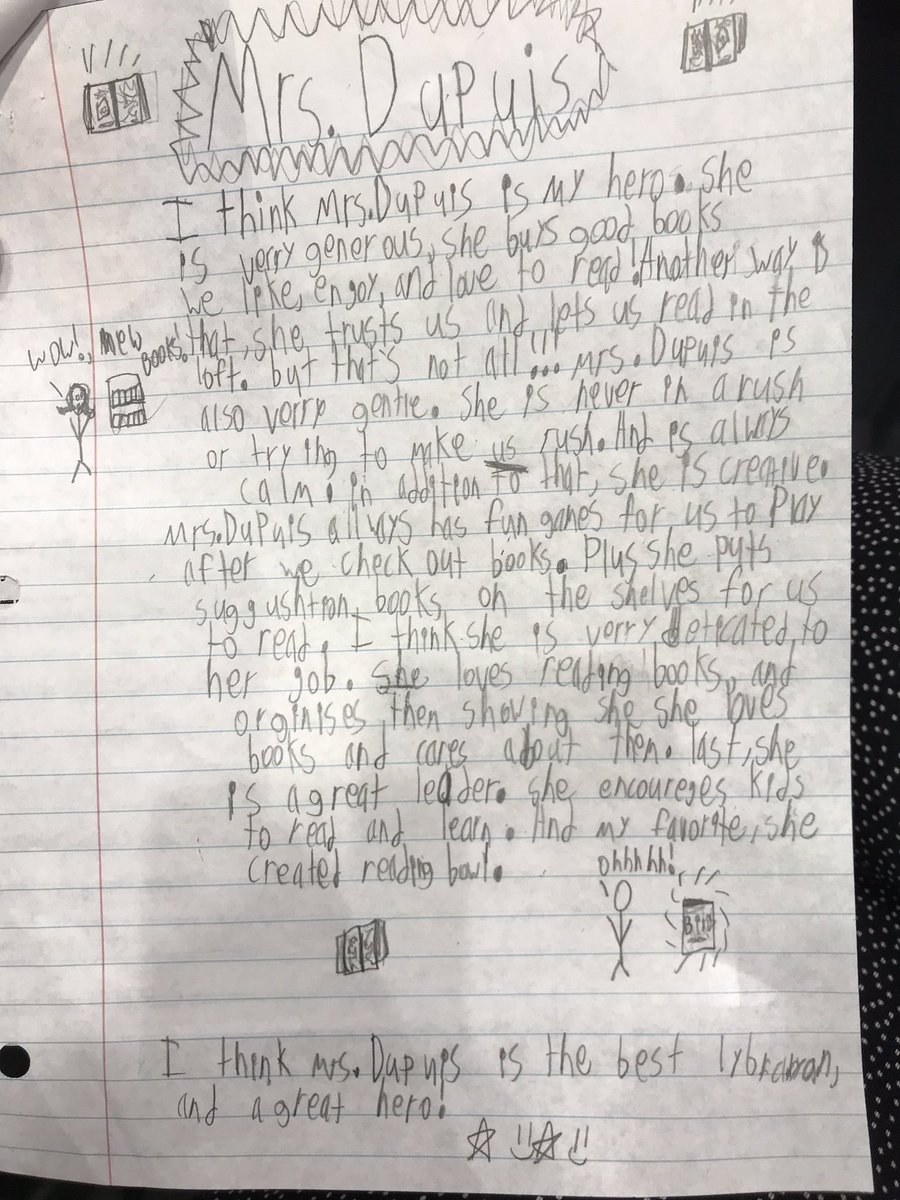 Mrs. Dupuis
I think Mrs. Dupuis is my hero. She
is verry generous, she buys good books
we like, engoy, and love to read! Another way is
that, she trusts us and lets us read in the
wow!, new books!
loft. but that's not all!!!... Mrs. Dupuis is
also verry gentle. She is never in a rush
or trying to make us rush. And is always
calm. in addition to that, she is creative.
Mrs. Dupuis allways has fun games for us to Play
after we check out books. Plus she puts
suggushtion books on the shelves for us
to read. I think she is verry deticated to
her gob. She loves reading books, and
orginises, then showing she she loves
books and cares about then. last, she
is a great leader. she encoureges kids
to read and learn. And my favorite, she
created reading bowl.
ohhhhh!
I think Mrs. Dupuis is the best
and a great hero!